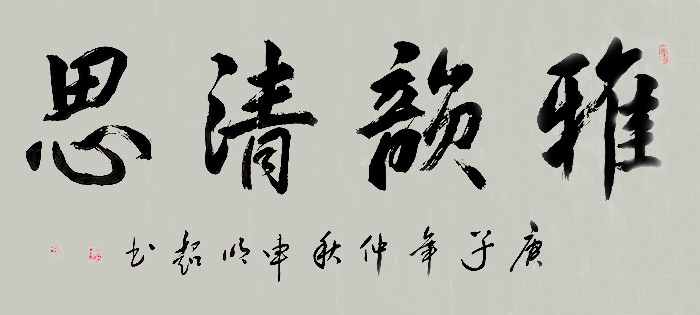 雅韻清思
庚子年仲秋申明超书